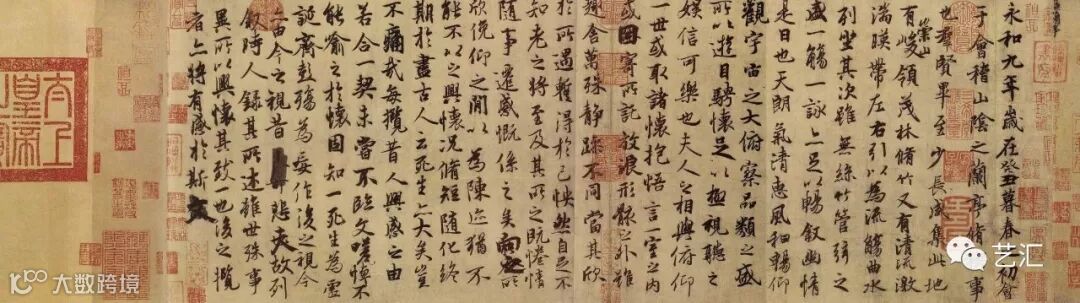 永和九年歲在癸丑暮春之初會
于會稽山陰之蘭亭脩稧事
也羣賢畢至少長咸集此地
有崇山峻領茂林脩竹又有清流激
湍暎帶左右引以為流觴曲水
列坐其次雖無絲竹管弦之
盛一觴一詠亦足以暢敘幽情
是日也天朗氣清惠風和暢仰
觀宇宙之大俯察品類之盛
所以遊目騁懷足以極視聽之
娛信可樂也夫人之相與俯仰
一世或取諸懷抱悟言一室之內
或因寄所託放浪形骸之外雖
趣舍萬殊靜躁不同當其欣
於所遇蹔得於己怏然自足不
知老之將至及其所之既惓情
隨事遷感慨係之矣向之所
欣俛仰之閒以為陳迹猶不
能不以之興懷況脩短隨化終
期於盡古人云死生亦大矣豈
不痛哉每攬昔人興感之由
若合一契未嘗不臨文嗟悼不
能喻之於懷固知一死生為虛
誕齊彭殤為妄作後之視今
亦由今之視昔悲夫故列
敘時人錄其所述雖世殊事
異所以興懷其致一也後之攬
者亦將有感於斯文
太上皇帝
大数跨境
艺汇